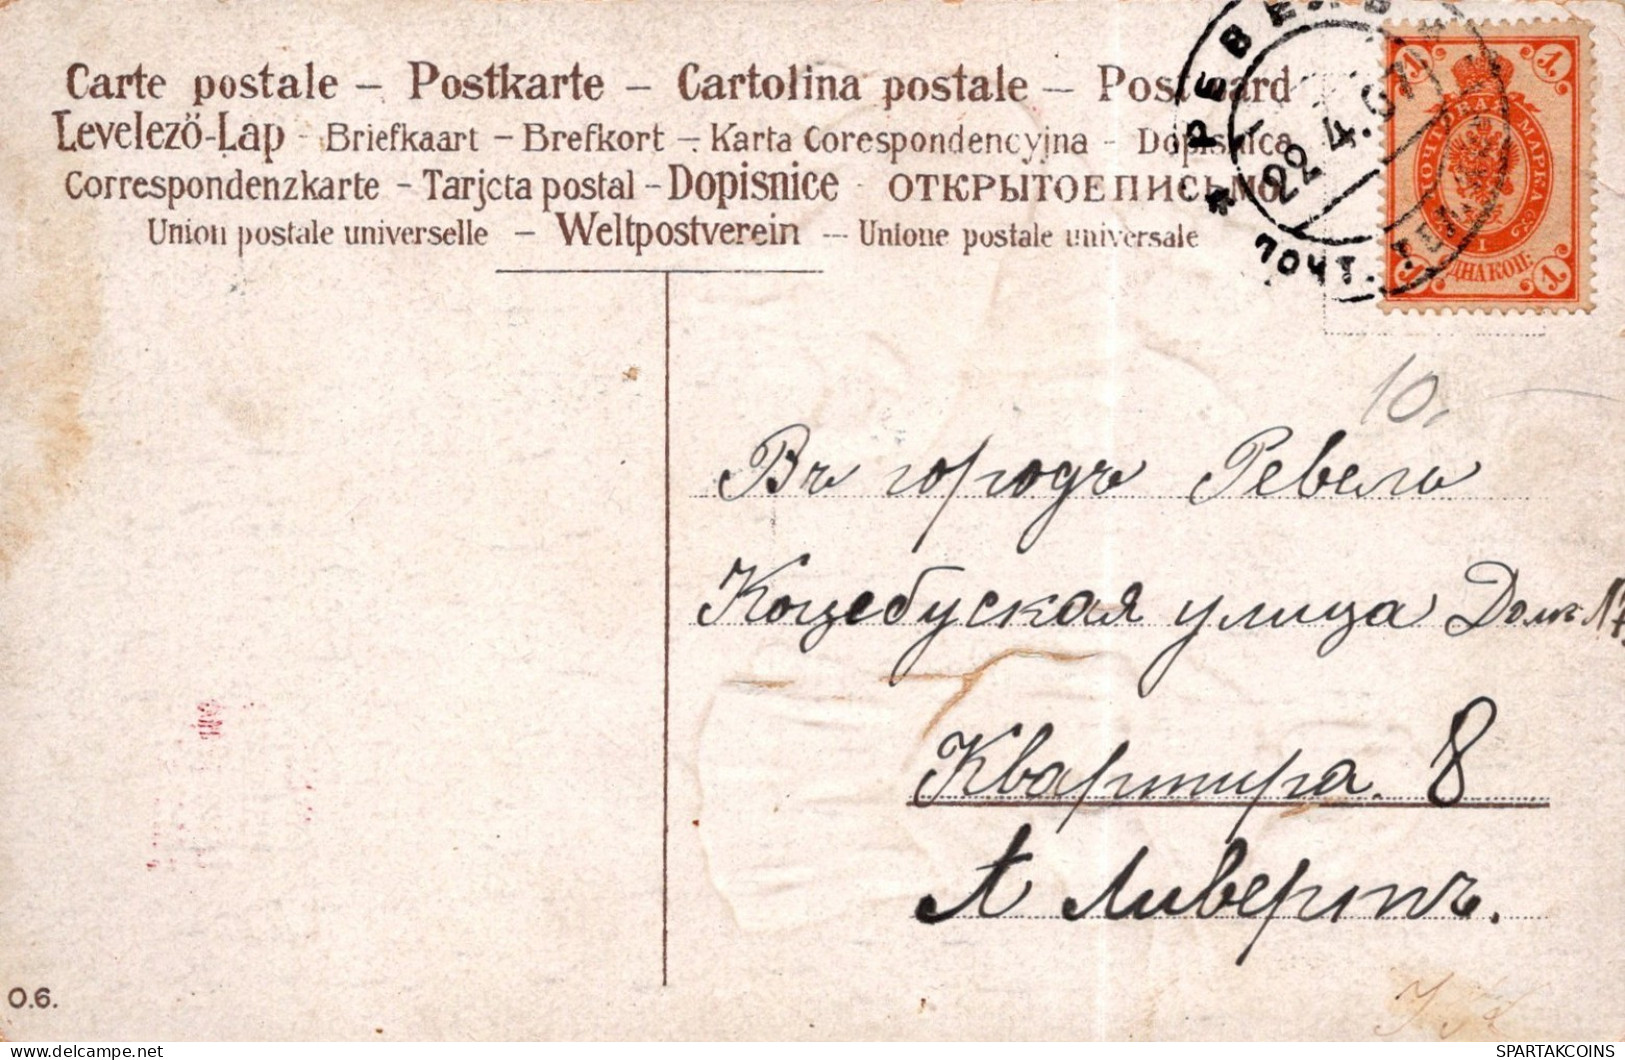 Carte postale – Postkarte – Cartolina postale – Post card
Levelező-Lap - Briefkaart – Brefkort – Karta Corespondencyjna - Dopisnica
Correspondenzkarte – Tarjeta postal – Dopisnice - ОТКРЫТОЕ ПИСЬМО
Union postale universelle – Weltpostverein — Unione postale universale
РЕВЕЛЬ
22 4.07
ПОЧТ.
ПОЧТОВАЯ МАРКА
1
ОДНА КОП:
10
Въ городъ Ревель
Коцебуская улица Домъ №
Квартира. 8
А Ливертъ.
О.6.
SPARTAKCOINS
SPARTAKCOINS.COM